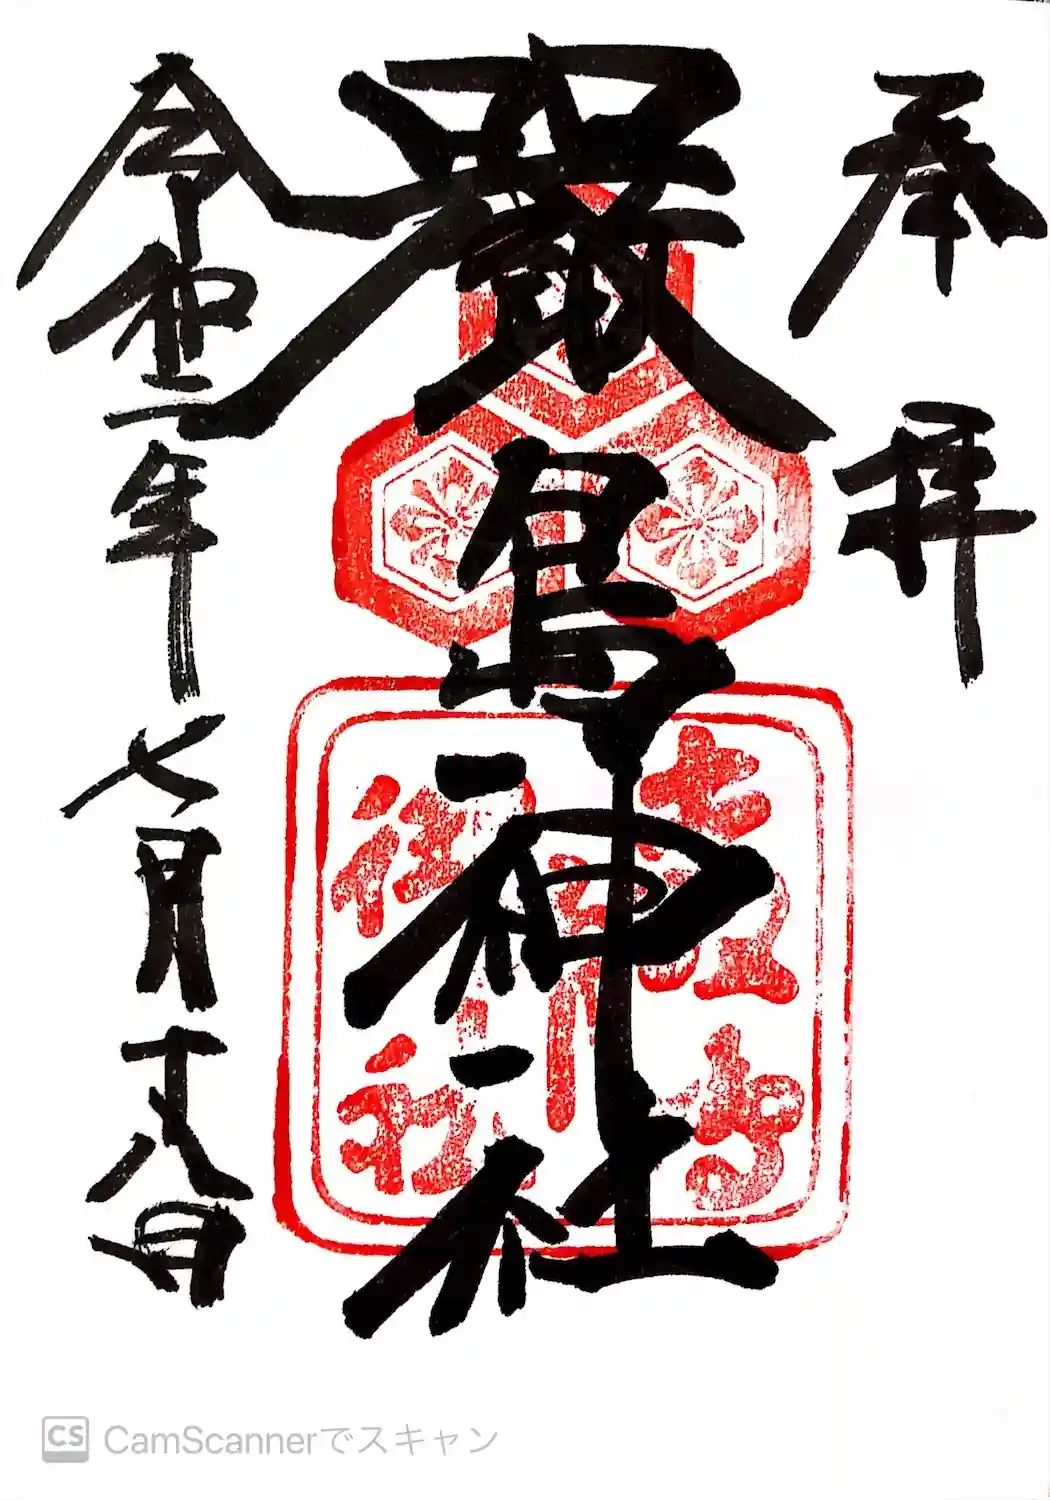 奉拝
厳島神社
令和二年七月十八日
CS CamScannerでスキャン